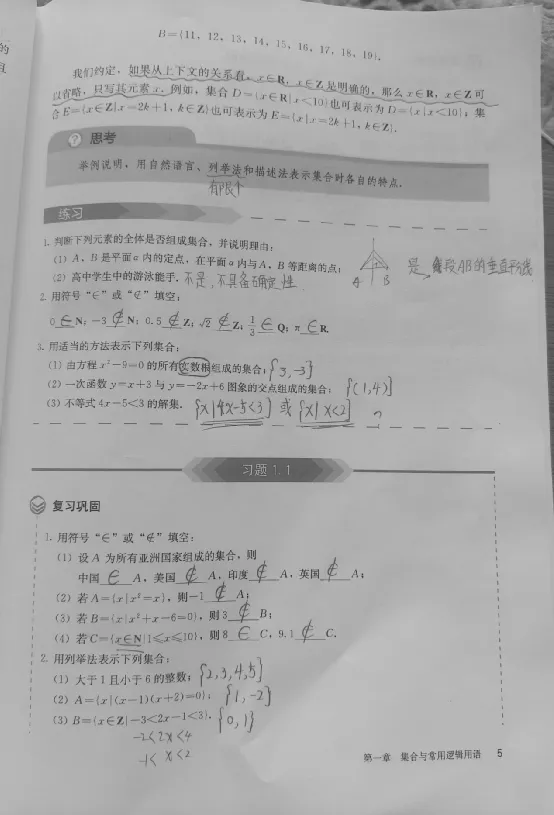 B={11, 12, 13, 14, 15, 16, 17, 18, 19}.
我们约定，如果从上下文的关系看，x∈R，x∈Z是明确的，那么x∈R，x∈Z可
以省略，只写其元素x．例如，集合D={x∈R|x<10}也可表示为D={x|x<10}；集
合E={x∈Z|x=2k+1，k∈Z}也可表示为E={x|x=2k+1，k∈Z}.
? 思考
举例说明，用自然语言、列举法和描述法表示集合时各自的特点．
有限个
练习
1. 判断下列元素的全体是否组成集合，并说明理由：
(1) A，B是平面α内的定点，在平面α内与A，B等距离的点； A B 是，线段AB的垂直平分线
(2) 高中学生中的游泳能手．不是，不具备确定性
2. 用符号“∈”或“∉”填空：
0 ∈ N；−3 ∉ N；0.5 ∉ Z；√2 ∉ Z；1/3 ∈ Q；π ∈ R.
3. 用适当的方法表示下列集合：
(1) 由方程x²−9=0的所有实数根组成的集合；{3,-3}
(2) 一次函数y=x+3与y=−2x+6图象的交点组成的集合；{(1,4)}
(3) 不等式4x−5<3的解集．{x|4x-5<3} 或 {x|x<2}
习题 1.1
复习巩固
1. 用符号“∈”或“∉”填空：
(1) 设A为所有亚洲国家组成的集合，则
中国 ∈ A，美国 ∉ A，印度 ∉ A，英国 ∉ A；
(2) 若A={x|x²=x}，则−1 ∉ A；
(3) 若B={x|x²+x−6=0}，则3 ∉ B；
(4) 若C={x∈N|1≤x≤10}，则8 ∈ C，9.1 ∉ C.
2. 用列举法表示下列集合：
(1) 大于1且小于6的整数；{2,3,4,5}
(2) A={x|(x−1)(x+2)=0}；{1,-2}
(3) B={x∈Z|−3<2x−1<3}．{0,1}
-2<2x<4
-1<x<2
第一章 集合与常用逻辑用语 5